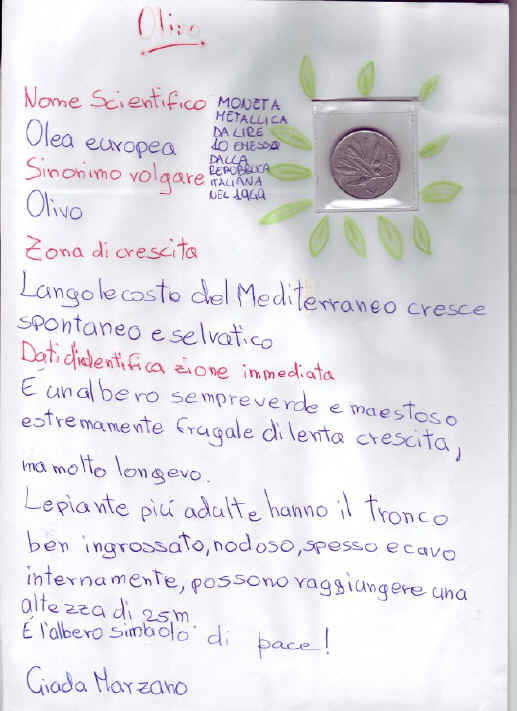 Olivo
Nome Scientifico
Olea europea
Sinonimo volgare
Olivo
MONETA
METALLICA
DA LIRE
10 EMESSA
DALLA
REPUBBLICA
ITALIANA
NEL 1949
Zona di crescita
Lungo le coste del Mediterraneo cresce
spontaneo e selvatico
Dati di identificazione immediata
È un albero sempreverde e maestoso
estremamente frugale di lenta crescita,
ma molto longevo.
Le piante più adulte hanno il tronco
ben ingrossato, nodoso, spesso e cavo
internamente, possono raggiungere una
altezza di 25 m
È l'albero simbolo di pace!
Giada Marzano